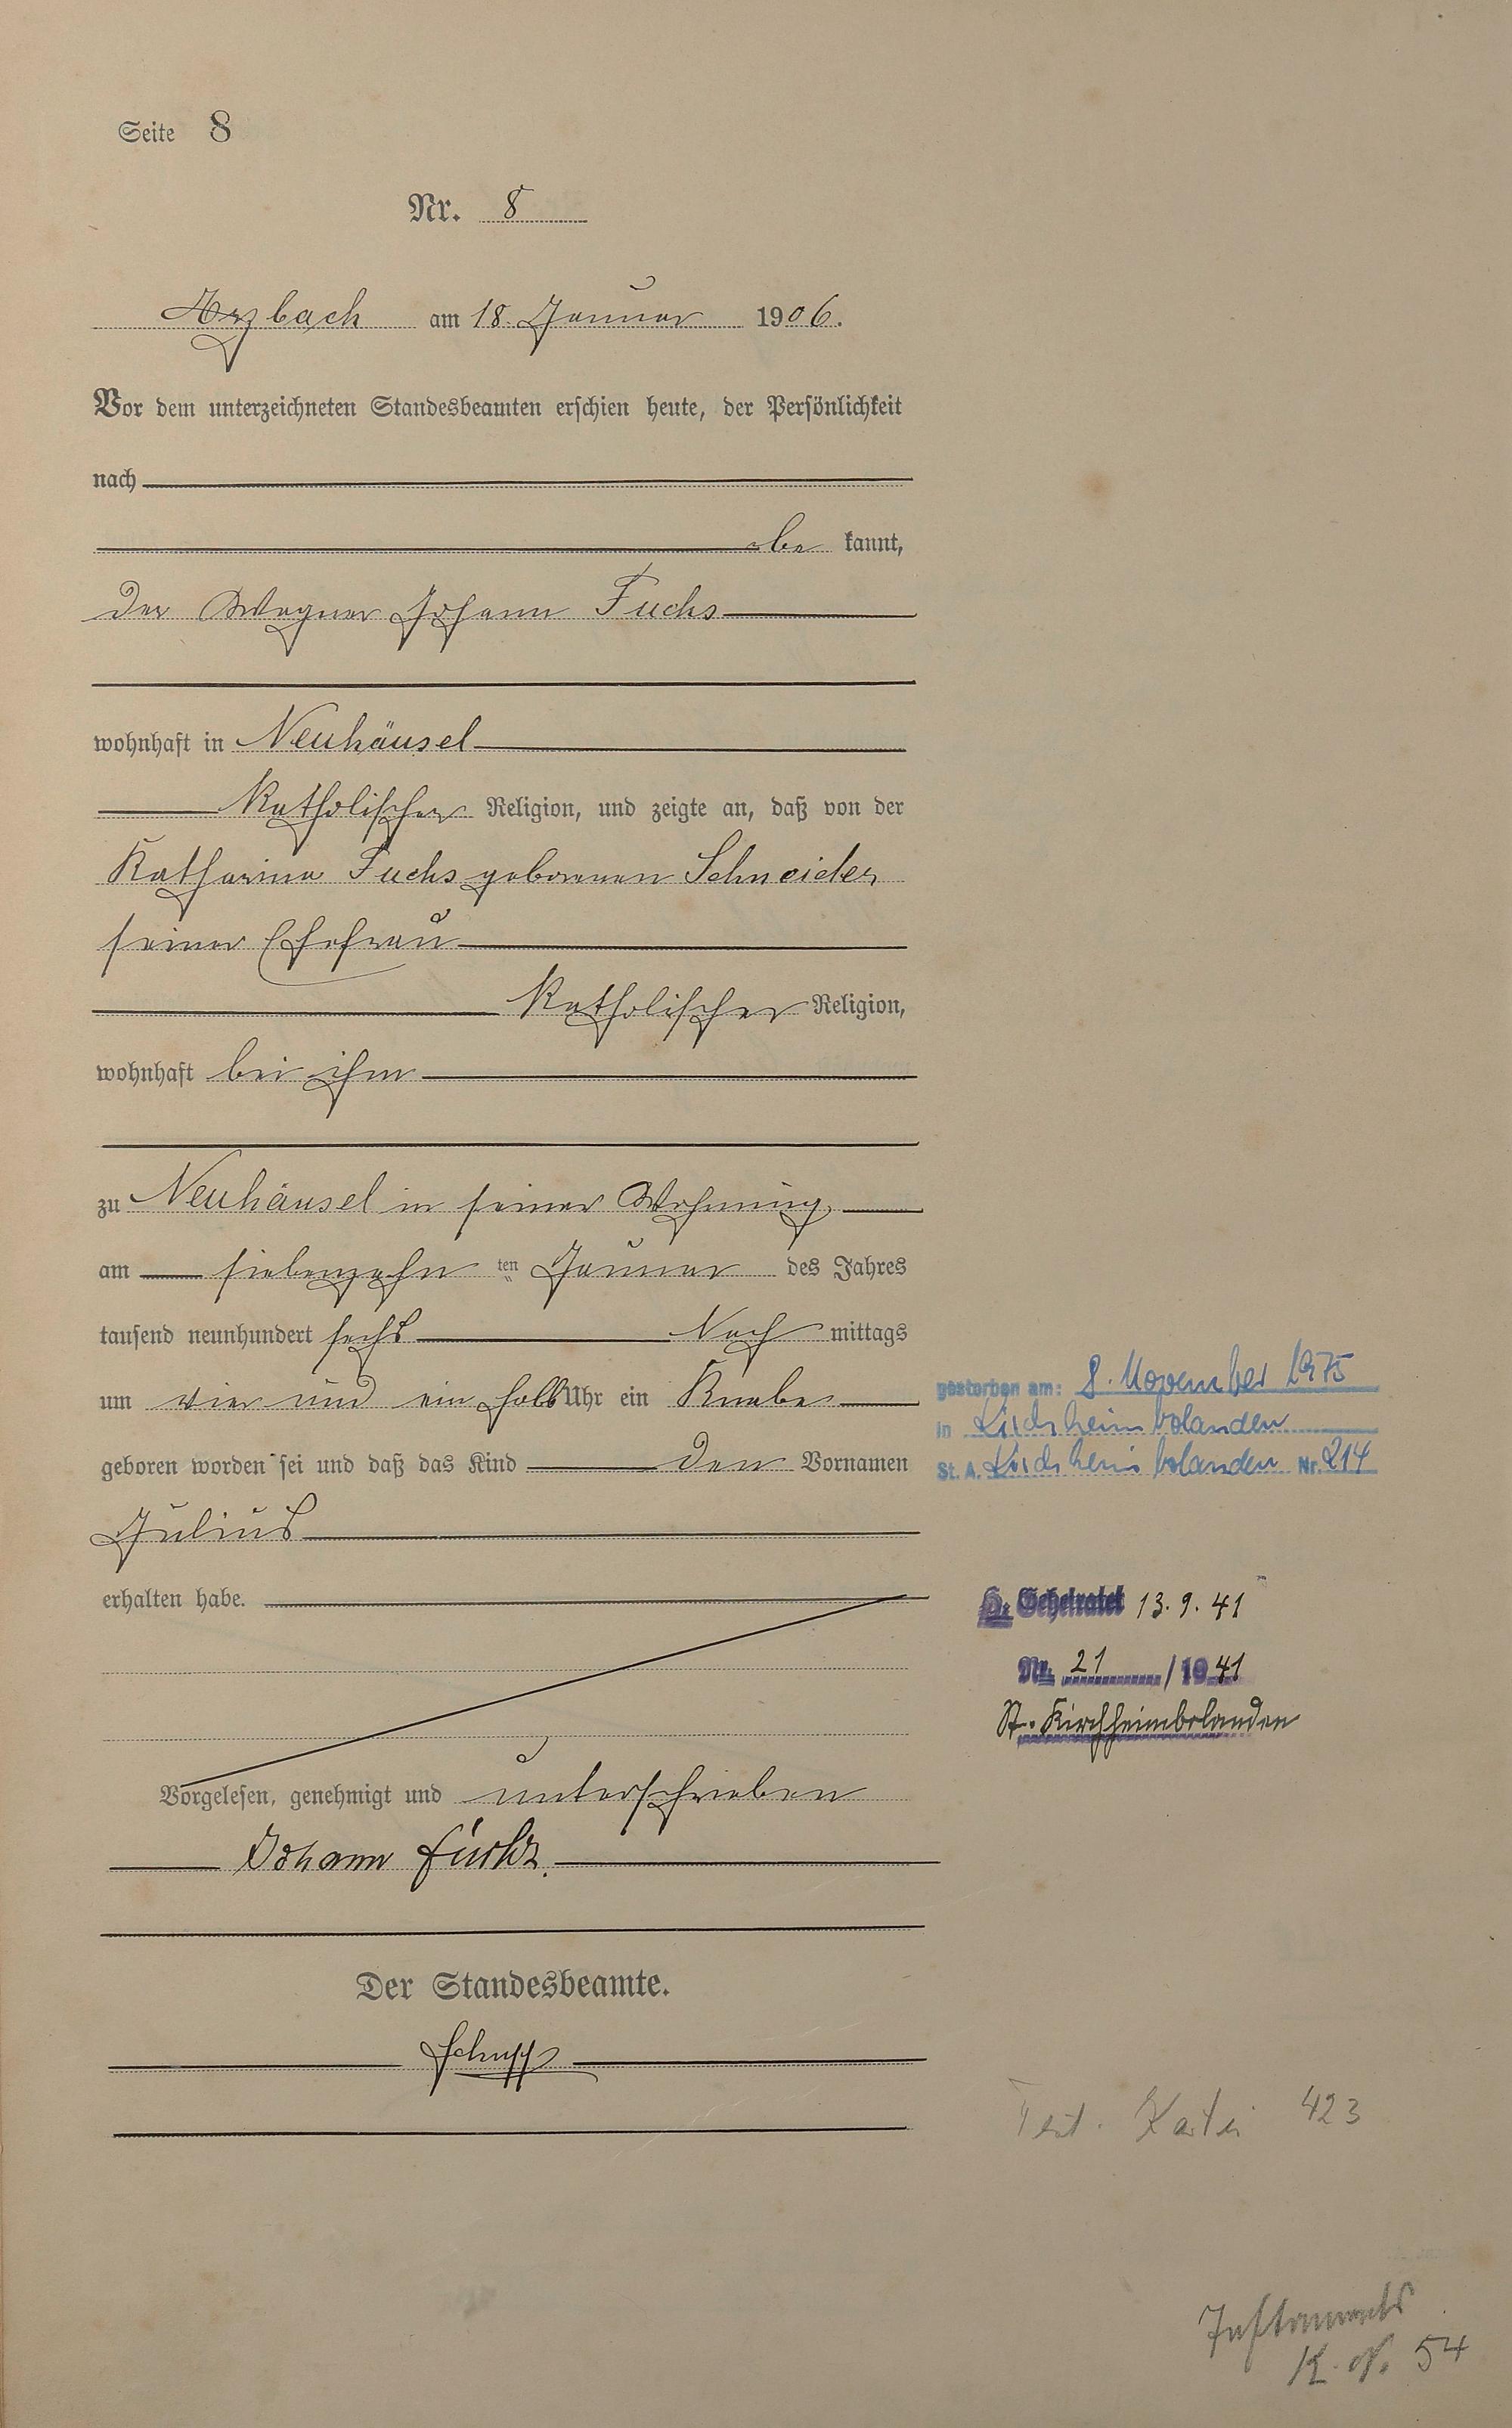 Seite 8
Nr. 8
Arzbach am 18. Januar 1906.
Vor dem unterzeichneten Standesbeamten erschien heute, der Persönlichkeit
nach
be kannt,
der Wagner Johann Fuchs
wohnhaft in Neuhäusel
Katholischer Religion, und zeigte an, daß von der
Katharina Fuchs geborenen Schneider
seiner Ehefrau
Katholischer Religion,
wohnhaft bei ihm
zu Neuhäusel in seiner Wohnung
am siebenzehn ten Januar des Jahres
tausend neunhundert sechs Nach mittags
um vier und ein halb Uhr ein Knabe
geboren worden sei und daß das Kind den Vornamen
Julius
erhalten habe.
Vorgelesen, genehmigt und unterschrieben
Johann Fuchs.
Der Standesbeamte.
Schupp
gestorben am: 8. November 1975
in Kirchheimbolanden
St. A. Kirchheimbolanden Nr. 214
Geheiratet 13.9.41
Nr. 21 / 1941
St. Kirchheimbolanden
Test. Kartei 423
Testaments
K. N. 54